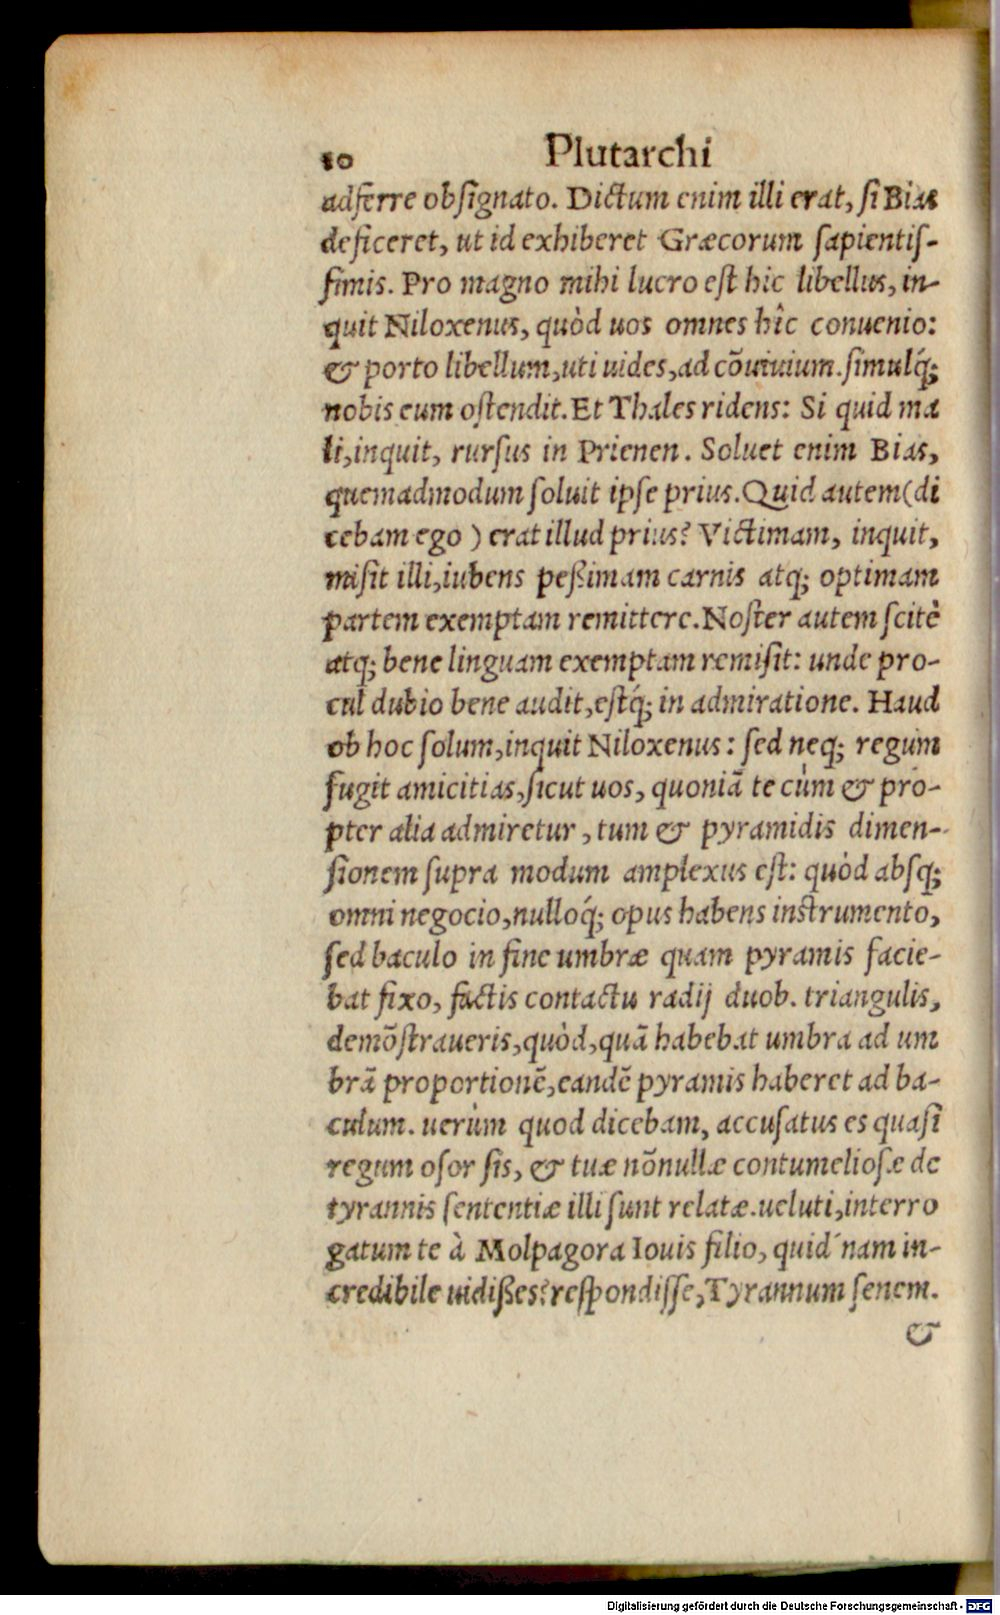 10 Plutarchi
adferre obſignato. Dictum enim illi erat, ſi Bias
deficeret, ut id exhiberet Græcorum ſapientiſ-
ſimis. Pro magno mihi lucro eſt hic libellus, in-
quit Niloxenus, quòd uos omnes hîc conuenio:
& porto libellum, uti uides, ad cõuiuium. ſimulq́;
nobis eum oſtendit. Et Thales ridens: Si quid ma
li, inquit, rurſus in Prienen. Soluet enim Bias,
quemadmodum ſoluit ipſe prius. Quid autem (di
cebam ego ) erat illud prius? Victimam, inquit,
miſit illi, iubens peßimam carnis atq; optimam
partem exemptam remittere. Noſter autem ſcitè
atq; bene linguam exemptam remiſit: unde pro-
cul dubio bene audit, eſtq́; in admiratione. Haud
ob hoc ſolum, inquit Niloxenus: ſed neq; regum
fugit amicitias, ſicut uos, quoniã te cùm & pro-
pter alia admiretur, tum & pyramidis dimen-
ſionem ſupra modum amplexus eſt: quòd abſq;
omni negocio, nulloq́; opus habens inſtrumento,
ſed baculo in fine umbræ quam pyramis facie-
bat fixo, factis contactu radij duob. triangulis,
demõſtraueris, quòd, quã habebat umbra ad um
brã proportionẽ, eandẽ pyramis haberet ad ba-
culum. uerùm quod dicebam, accuſatus es quaſi
regum oſor ſis, & tuæ nõnullæ contumelioſæ de
tyrannis ſententiæ illi ſunt relatæ. ueluti, interro
gatum te à Molpagora Iouis filio, quid´nam in-
credibile uidißes? reſpondiſſe, Tyrannum ſenem.
&
Digitalisierung gefördert durch die Deutsche Forschungsgemeinschaft - DFG